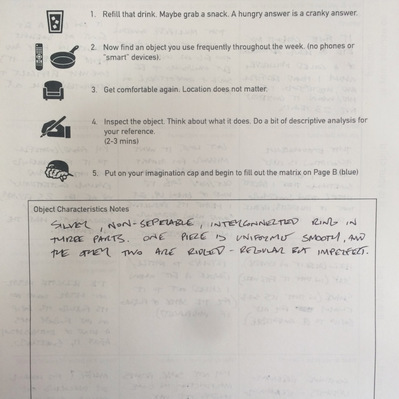 1. Refill that drink. Maybe grab a snack. A hungry answer is a cranky answer.
2. Now find an object you use frequently throughout the week. (no phones or
"smart" devices).
3. Get comfortable again. Location does not matter.
4. Inspect the object. Think about what it does. Do a bit of descriptive analysis for
your reference.
(2-3 mins)
5. Put on your imagination cap and begin to fill out the matrix on Page B (blue)
Object Characteristics Notes
SILVER, NON-SEPERABLE, INTERCONNECTED RING IN
THREE PARTS. ONE PIECE IS UNIFORMLY SMOOTH, AND
THE OTHER TWO ARE RIDGED - REGULAR BUT IMPERFECT.